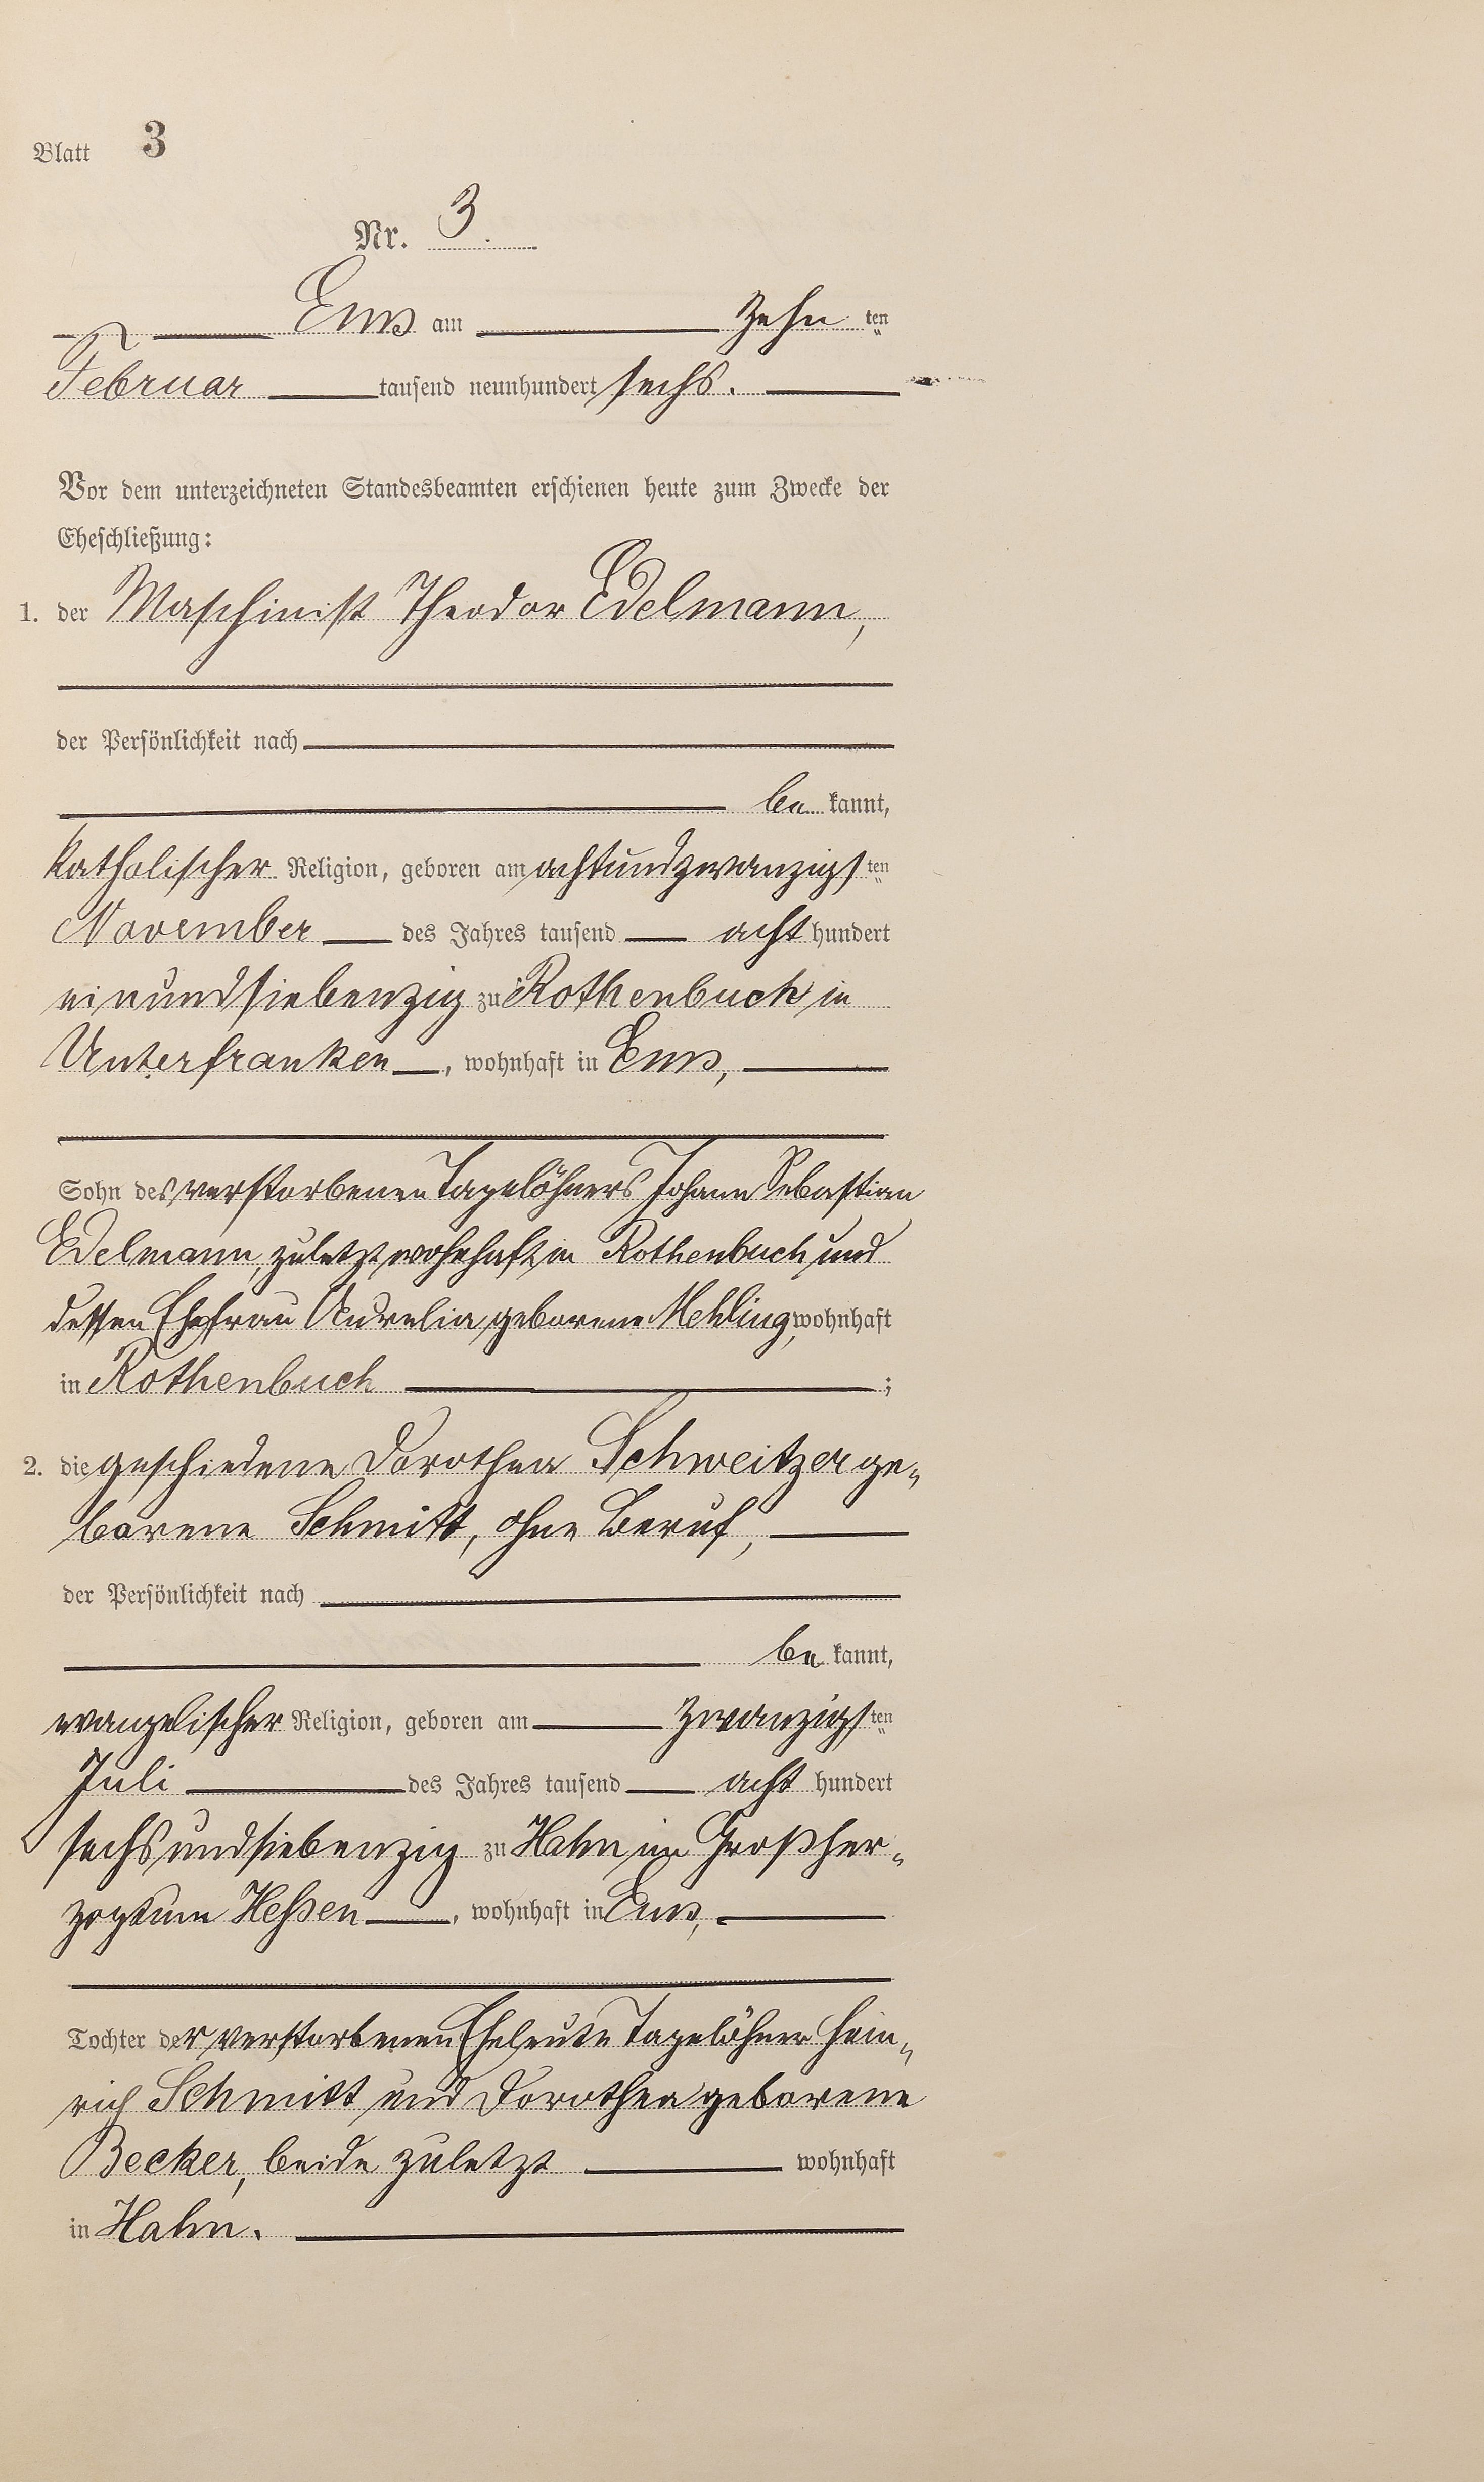 Blatt 3
Nr. 3.
Ems am zehn ten
Februar tausend neunhundert sechs.
Vor dem unterzeichneten Standesbeamten erschienen heute zum Zwecke der
Eheschließung:
1. der Maschinist Theodor Edelmann,
der Persönlichkeit nach
be kannt,
katholischer Religion, geboren am achtundzwanzigs ten
November des Jahres tausend acht hundert
einundsiebenzig zu Rothenbuch in
Unterfranken, wohnhaft in Ems,
Sohn des verstorbenen Tagelöhners Johann Sebastian
Edelmann, zuletzt wohnhaft in Rothenbuch und
dessen Ehefrau Aurelia, geborene Mehling, wohnhaft
in Rothenbuch ;
2. die geschiedene Dorothea Schweitzer ge-
borene Schmitt, ohne Beruf,
der Persönlichkeit nach
be kannt,
evangelischer Religion, geboren am zwanzigs ten
Juli des Jahres tausend acht hundert
sechsundsiebenzig zu Hahn im Großher-
zogtum Hessen, wohnhaft in Ems,
Tochter der verstorbenen Eheleute Tagelöhner Hein-
rich Schmitt und Dorothea geborene
Becker, beide zuletzt wohnhaft
in Hahn.